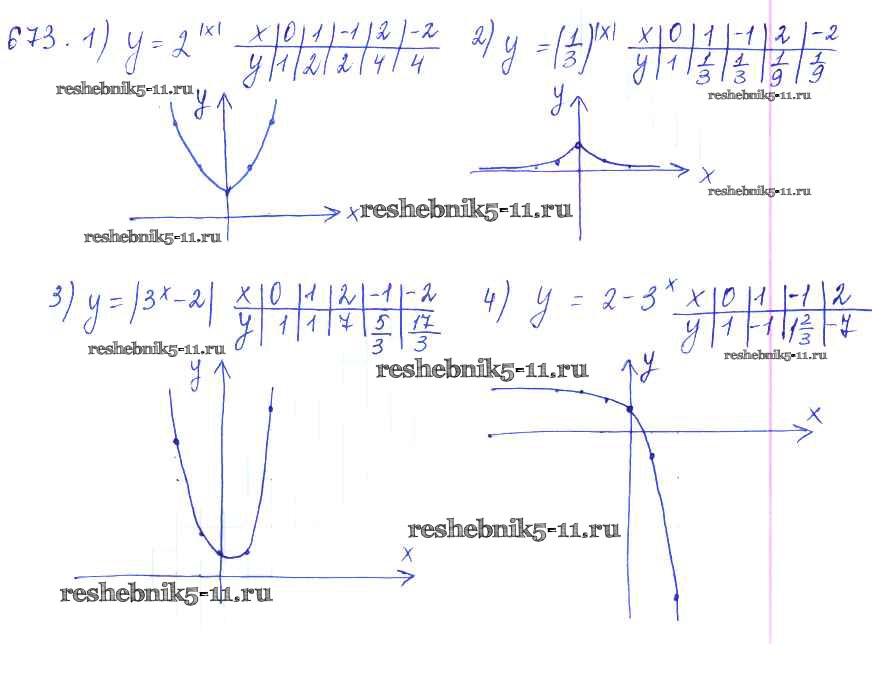 673. 1) y = 2^|x| x 0 1 -1 2 -2 2) y = (1/3)^|x| x 0 1 -1 2 -2
y 1 2 2 4 4 y 1 1/3 1/3 1/9 1/9
reshebnik5-11.ru reshebnik5-11.ru
y y
x x
reshebnik5-11.ru reshebnik5-11.ru
reshebnik5-11.ru
3) y = |3^x - 2| x 0 1 2 -1 -2 4) y = 2 - 3^x x 0 1 -1 2
y 1 1 7 5/3 17/3 y 1 -1 1 2/3 -7
reshebnik5-11.ru reshebnik5-11.ru
reshebnik5-11.ru
y y
x
reshebnik5-11.ru
x
reshebnik5-11.ru